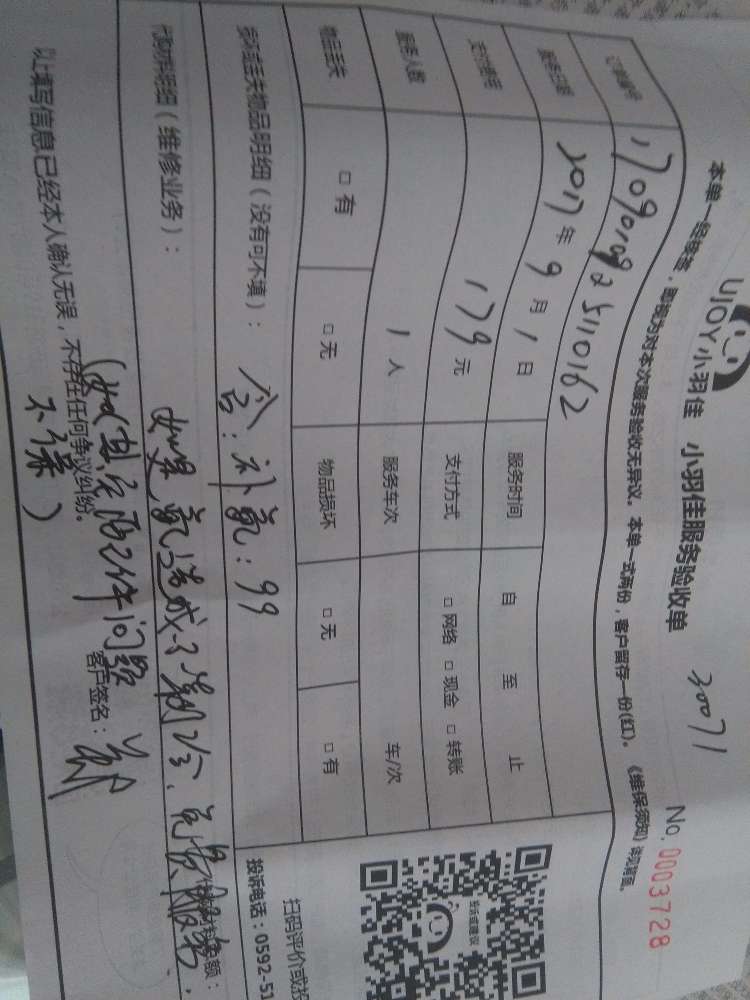 UJOY小羽佳 小羽佳服务验收单
30071
No. 0003728
本单一经接签，即视为对本次服务验收无异议。本单一式两份，客户留存一份(红)。《维保须知》
订单编号 1709010925110162
服务日期 2017年9月1日 服务时间 自 至 止
支付费用 179元 支付方式 □网络 □现金 □转账
服务人数 1人 服务车次 车/次
物品丢失 □有 □无 物品损坏 □无 □有
损坏或丢失物品明细（没有可不填）：含：补氟：99
代购材料明细（维修业务）：
如果氟造成不制冷，免费服务.
（如其它配件问题
不保）
以上填写信息已经本人确认无误，不存在任何争议纠纷。
客户签名：
扫码评价或投
投诉电话：0592-51